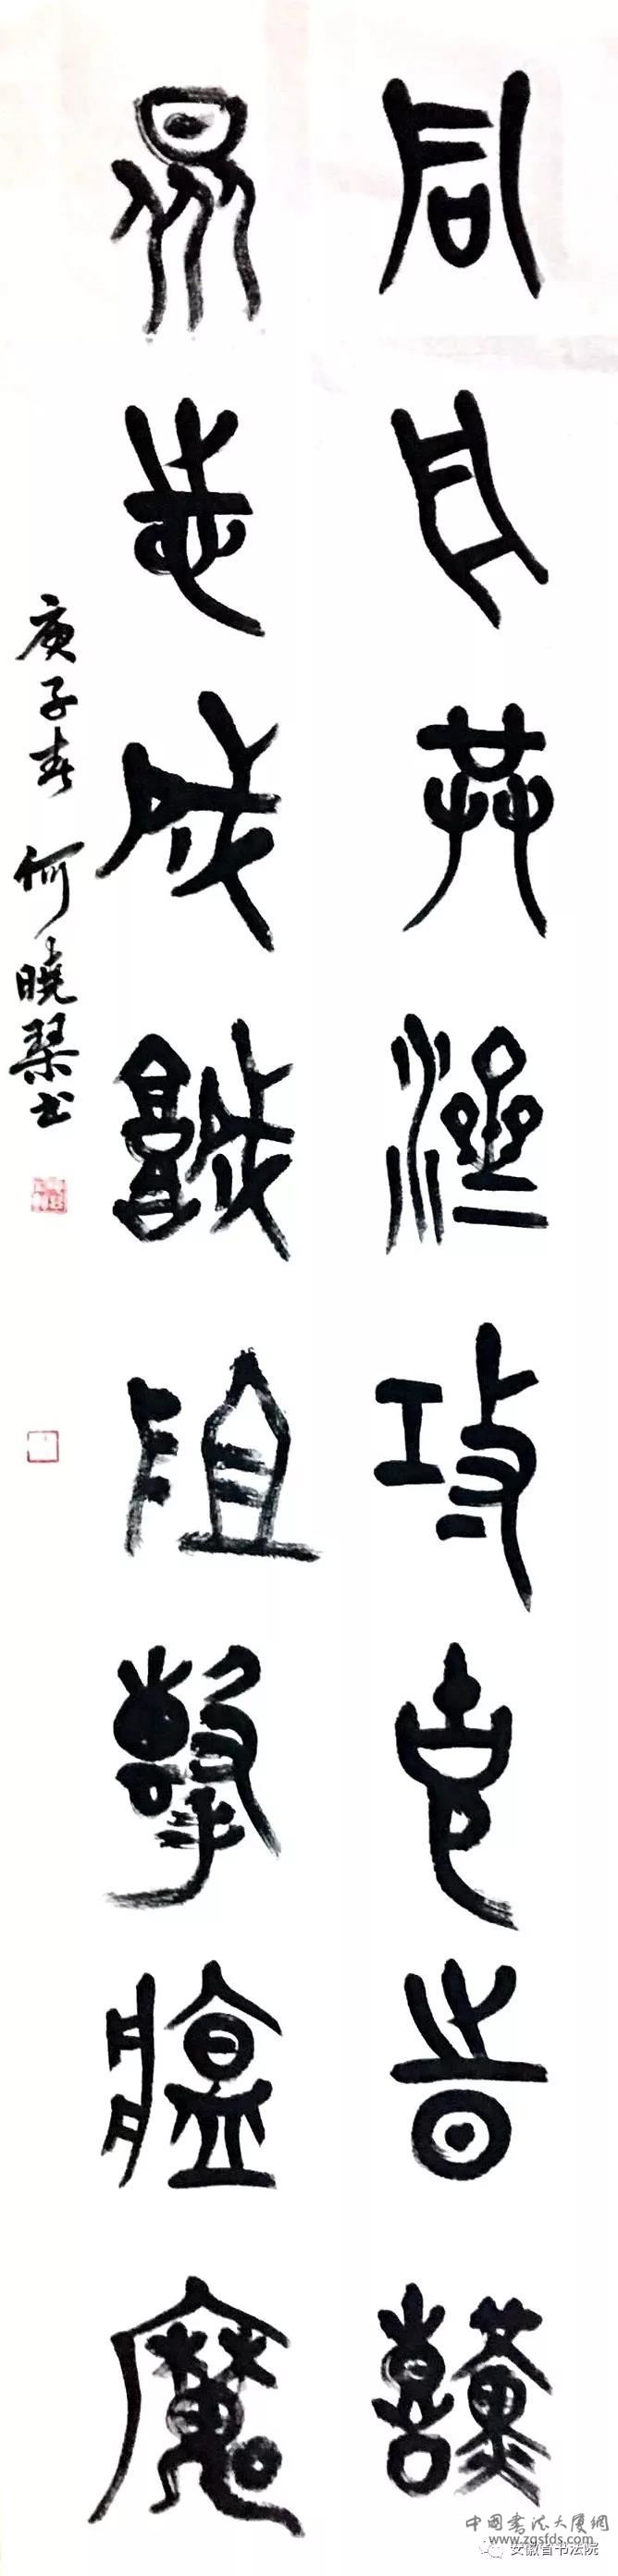 同舟共濟攻克時艱
眾志成城阻擊瘟魔
庚子春 何曉琹书
中國書法大廈網
www.zgsfds.com
安徽省书法院